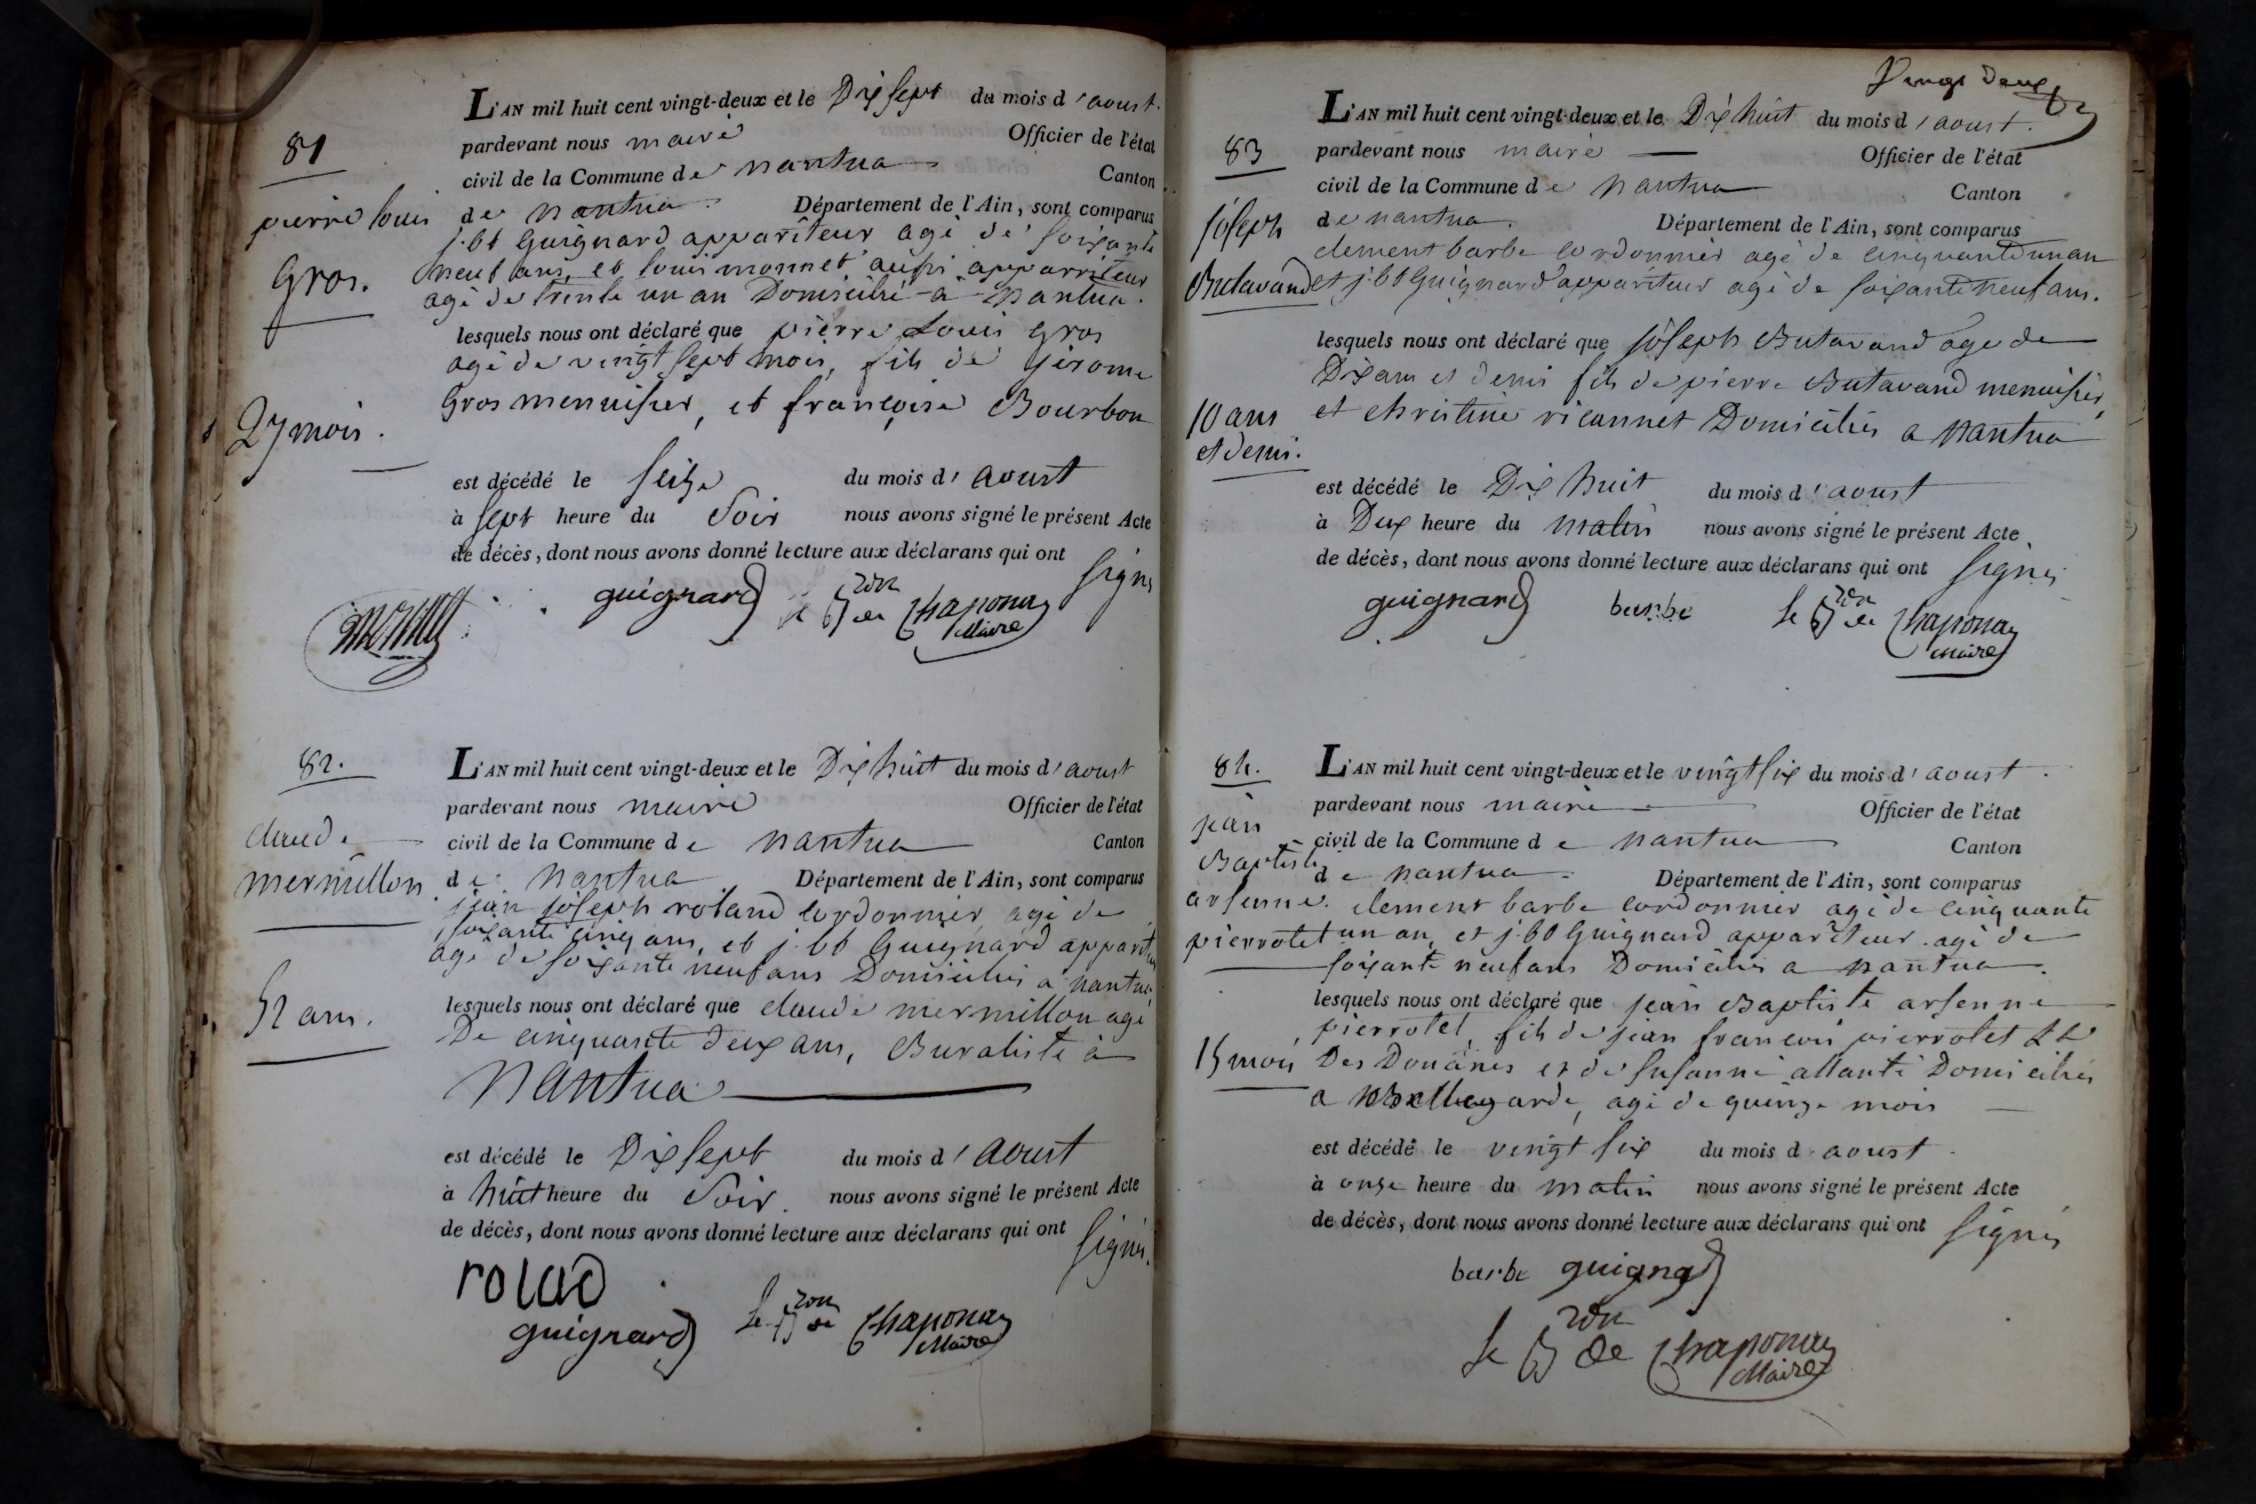 81
pierre louis
Gros.
27 mois.
L'AN mil huit cent vingt-deux et le Dix sept du mois d'aoust.
pardevant nous maire Officier de l'état
civil de la Commune de nantua Canton
de nantua. Département de l'Ain, sont comparus
j. bt Guignard appariteur agé de soixante
neuf ans, et louis monnet aussi apparriteur
agé de trente un an Domicilié à nantua.
lesquels nous ont déclaré que pierre Louis Gros
agé de vingt sept mois, fils de jérome
Gros menuisier, et françoise Bourbon
est décédé le seize du mois d'aoust
à sept heure du Soir nous avons signé le présent Acte
de décès, dont nous avons donné lecture aux déclarans qui ont signés
monnet guignard le Bon de Chaponay
Maire
82.
claude
mermillon
52 ans.
L'AN mil huit cent vingt-deux et le Dix huit du mois d'aoust
pardevant nous maire Officier de l'état
civil de la Commune de nantua Canton
de nantua Département de l'Ain, sont comparus
jean joseph roland cordonnier agé de
soixante cinq ans, et j. bt Guignard appariteur
agé de soixante neuf ans Domiciliés a nantua,
lesquels nous ont déclaré que claude mermillon agé
De cinquante deux ans, Buraliste à
Nantua
est décédé le Dix sept du mois d'aoust
à huit heure du Soir. nous avons signé le présent Acte
de décès, dont nous avons donné lecture aux déclarans qui ont signés.
rolad
guignard le Bon de Chaponay
Maire
Vingt deux
83
joseph
Butavand
10 ans
et demi.
L'AN mil huit cent vingt-deux et le Dix huit du mois d'aoust.
pardevant nous maire Officier de l'état
civil de la Commune de nantua Canton
de nantua. Département de l'Ain, sont comparus
clement barbe cordonnier agé de cinquante un an
et j. bt Guignard appariteur agé de soixante neuf ans.
lesquels nous ont déclaré que joseph Butavand age de
Dix ans et demi fils de pierre Butavand menuisier,
et christine Domiciliés a nantua
est décédé le Dix huit du mois d'aoust
à Deux heure du matin nous avons signé le présent Acte
de décès, dont nous avons donné lecture aux déclarans qui ont signés
guignard barbe le Bon de Chaponay
Maire
84.
jean
Baptiste
arsenne.
pierrotet
15 mois
L'AN mil huit cent vingt-deux et le vingt six du mois d'aoust.
pardevant nous maire Officier de l'état
civil de la Commune de nantua Canton
de nantua. Département de l'Ain, sont comparus
clement barbe cordonnier agé de cinquante
un an, et j. bt Guignard appariteur agé de
soixante neuf ans Domiciliés a nantua.
lesquels nous ont déclaré que jean Baptiste arsenne
pierrotet, fils de jean francois pierrotet
Des Douanes et de susanne allante Domiciliés
a Bellegarde, agé de quinze mois
est décédé le vingt six du mois d'aoust.
à onze heure du matin nous avons signé le présent Acte
de décès, dont nous avons donné lecture aux déclarans qui ont signés
barbe guignard
le Bon de Chaponay
Maire